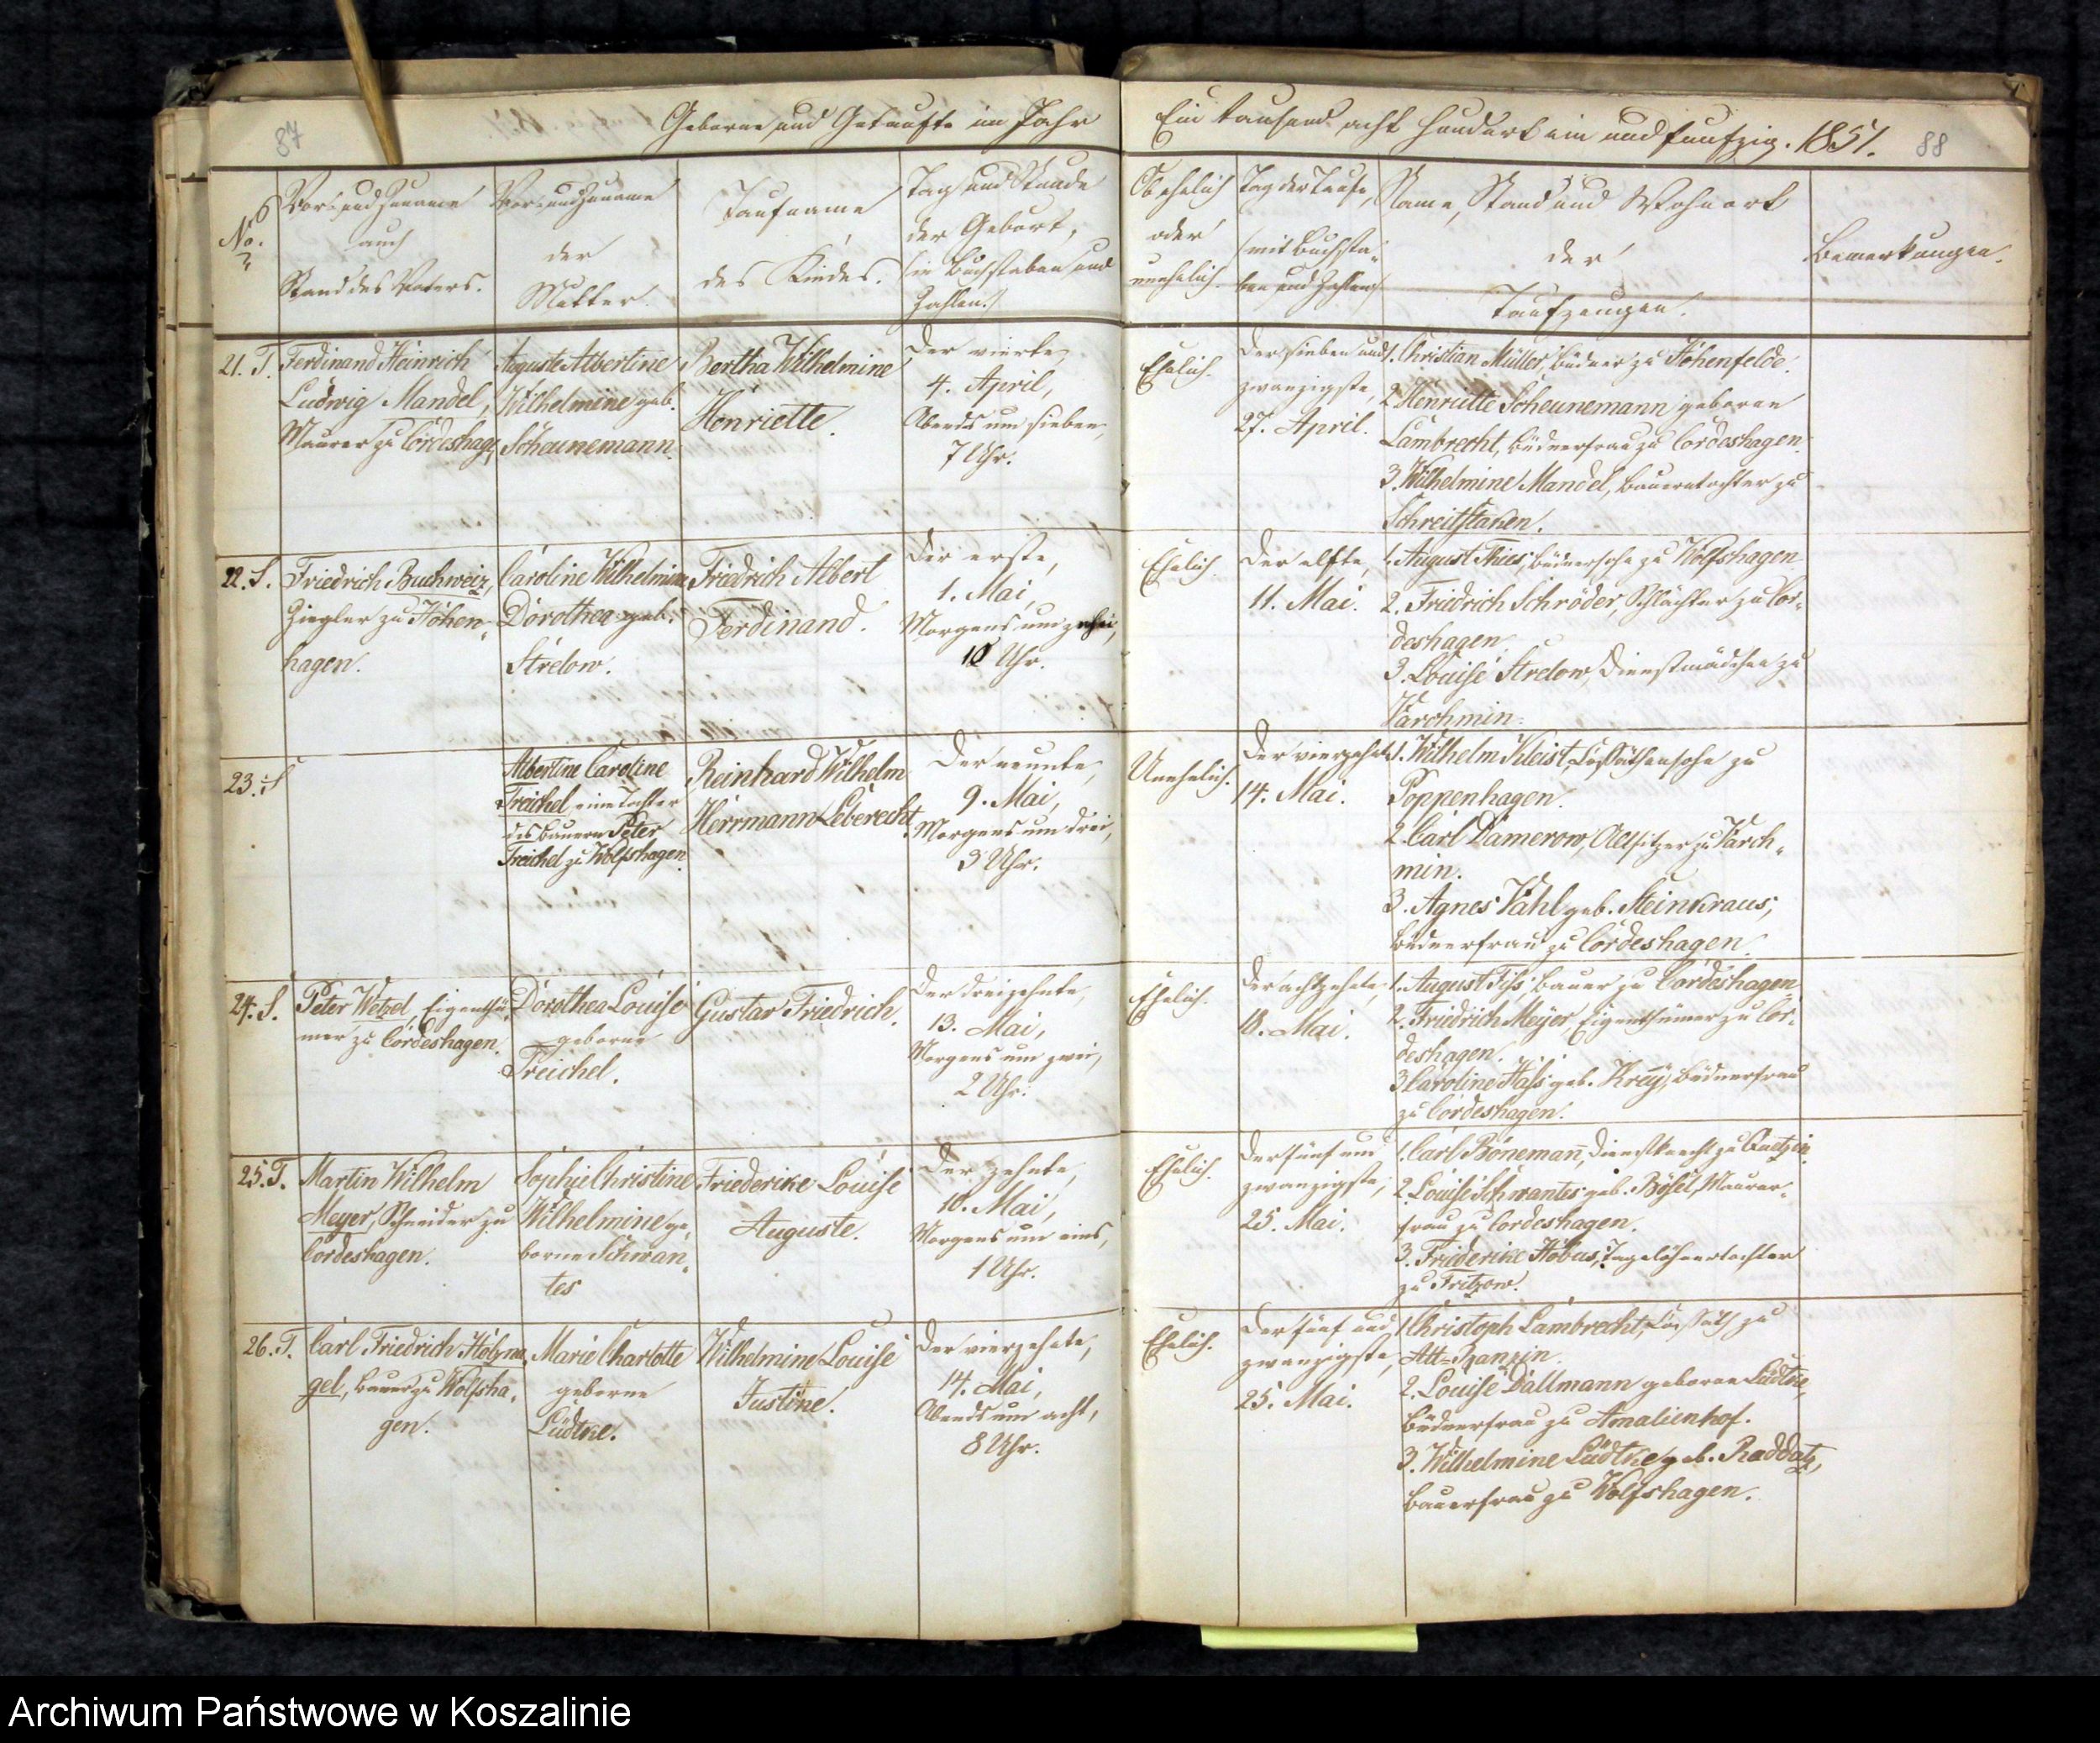 87
Geborne und Getaufte im Jahr
No.
Vor- und Zuname
auch
Stand des Vaters.
Vor- und Zuname
der
Mutter.
Taufname
des Kindes.
Tag und Stunde
der Geburt,
(in Buchstaben und
Zahlen.)
21. T.
Ferdinand Heinrich
Ludwig Mandel,
Maurer zu Cordeshagen
Auguste Albertine
Wilhelmine geb.
Scheunemann.
Bertha Wilhelmine
Henriette.
Der vierte,
4. April,
Abends um sieben,
7 Uhr.
22. S.
Friedrich Buchweiz,
Ziegler zu Hohen-
hagen.
Caroline Wilhelmine
Dorothea geb.
Strelow.
Friedrich Albert
Ferdinand.
Der erste,
1. Mai,
Morgens um zehn,
10 Uhr.
23. S
Albertine Caroline
Treichel eine Tochter
des Bauern Peter
Treichel zu Wolfshagen.
Reinhard Wilhelm
Herrmann Leberecht.
Der neunte,
9. Mai,
Morgens um drei,
3 Uhr.
24. S.
Peter Wetzel, Eigenthü-
mer zu Cordeshagen.
Dorothea Louise
geborne
Treichel.
Gustav Friedrich.
Der dreizehnte,
13. Mai,
Morgens um zwei,
2 Uhr.
25. T.
Martin Wilhelm
Meyer, Schneider zu
Cordeshagen.
Sophie Christine
Wilhelmine ge-
borne Schwan-
tes
Friederike Louise
Auguste.
Der zehnte,
10. Mai,
Morgens um eins,
1 Uhr.
26. T.
Carl Friedrich Holzna-
gel, Bauer zu Wolfsha-
gen.
Marie Charlotte
geborne
Lüdtke.
Wilhelmine Louise
Justine.
Der vierzehnte,
14. Mai,
Abends um acht,
8 Uhr.
Ein tausend acht hundert ein und funfzig. 1851.
88
Ob ehelich
oder
unehelich.
Tag der Taufe,
(mit Buchsta-
ben und Zahlen)
Name, Stand und Wohnort
der
Taufzeugen.
Bemerkungen.
Ehelich.
Der sieben und
zwanzigste,
27. April.
1. Christian Müller, Büdner zu Hohenfelde.
2. Henriette Scheunemann geborne
Lambrecht, Büdnerfrau zu Cordeshagen.
3. Wilhelmine Mandel, Bauerntochter zu
Schreitstaken.
Ehelich.
Der elfte,
11. Mai.
1. August Thies, Büdnersohn zu Wolfshagen
2. Friedrich Schröder, Schlächter zu Cor-
deshagen.
3. Louise Strelow, Dienstmädchen zu
Varchmin.
Unehelich.
Der vierzehnte
14. Mai.
1. Wilhelm Kleist, Coßäthensohn zu
Poppenhagen.
2. Carl Damerow, Altsitzer zu Varch-
min.
3. Agnes Vahl geb. Steinkraus,
Büdnerfrau zu Cordeshagen.
Ehelich.
Der achtzehnte,
18. Mai.
1. August Tiss, Bauer zu Cordeshagen
2. Friedrich Meyer, Eigenthümer zu Cor-
deshagen.
3. Caroline Hass geb. Krey, Büdnerfrau
zu Cordeshagen.
Ehelich.
Der fünf und
zwanzigste,
25. Mai.
1. Carl Bönemann, Dienstknecht zu
2. Louise Schwantes geb. Bösel, Maurer-
frau zu Cordeshagen.
3. Friederike Höbus, Tagelöhnertochter
zu Fritzow.
Ehelich.
Der fünf und
zwanzigste,
25. Mai.
1. Christoph Lambrecht, Coßäth zu
Alt-Banzin.
2. Louise Dallmann geborne Lüdtke,
Büdnerfrau zu Amalienhof.
3. Wilhelmine Lüdtke geb. Raddatz,
Bauerfrau zu Wolfshagen.
Archiwum Państwowe w Koszalinie